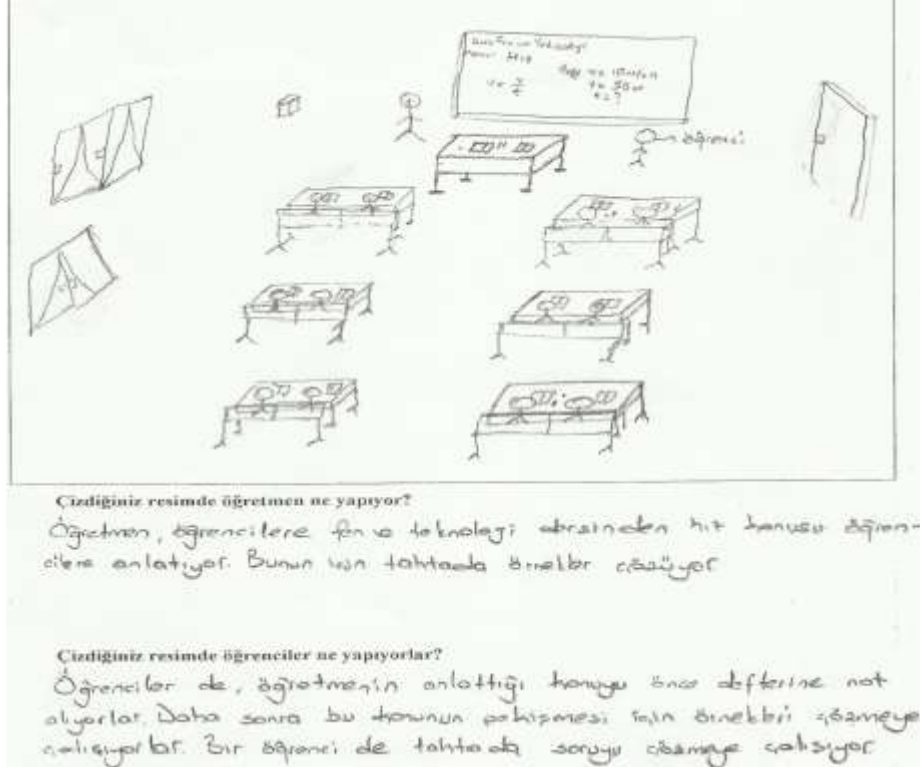 Ders: Fen ve Teknoloji
Konu: Hız
V = X/t
t = ?
öğrenci
Çizdiğiniz resimde öğretmen ne yapıyor?
Öğretmen, öğrencilere fen ve teknoloji dersinden hız konusu öğren-
cilere anlatıyor. Bunun için tahtada örnekler çözüyor
Çizdiğiniz resimde öğrenciler ne yapıyorlar?
Öğrenciler de, öğretmenin anlattığı konuyu önce defterine not
alıyorlar. Daha sonra bu konunun pekişmesi için örnekleri çözmeye
çalışıyorlar. Bir öğrenci de tahtada soruyu çözmeye çalışıyor